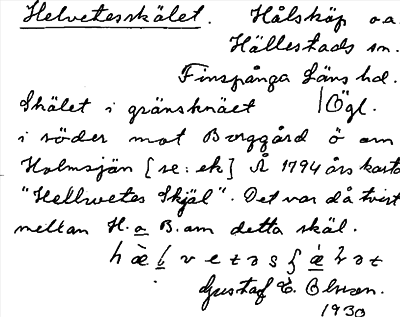 Helvetesskälet. Hålsköp o.a.
Hällestads sn.
Finspånga Läns hd.
Skälet i gränsknäet / Ögl.
i söder mot Borggård ö om
Holmsjön [se: ek] Å 1794 års karta
"Hellwetes Skjäl". Det var då tvist
mellan H. a B. om detta skäl.
Gustaf E. Olsson.
1930